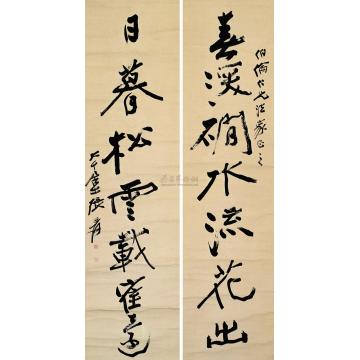 春深磵水流花出
伯倫仁兄法家正之
日暮松雲載隺還
大千居士張爰